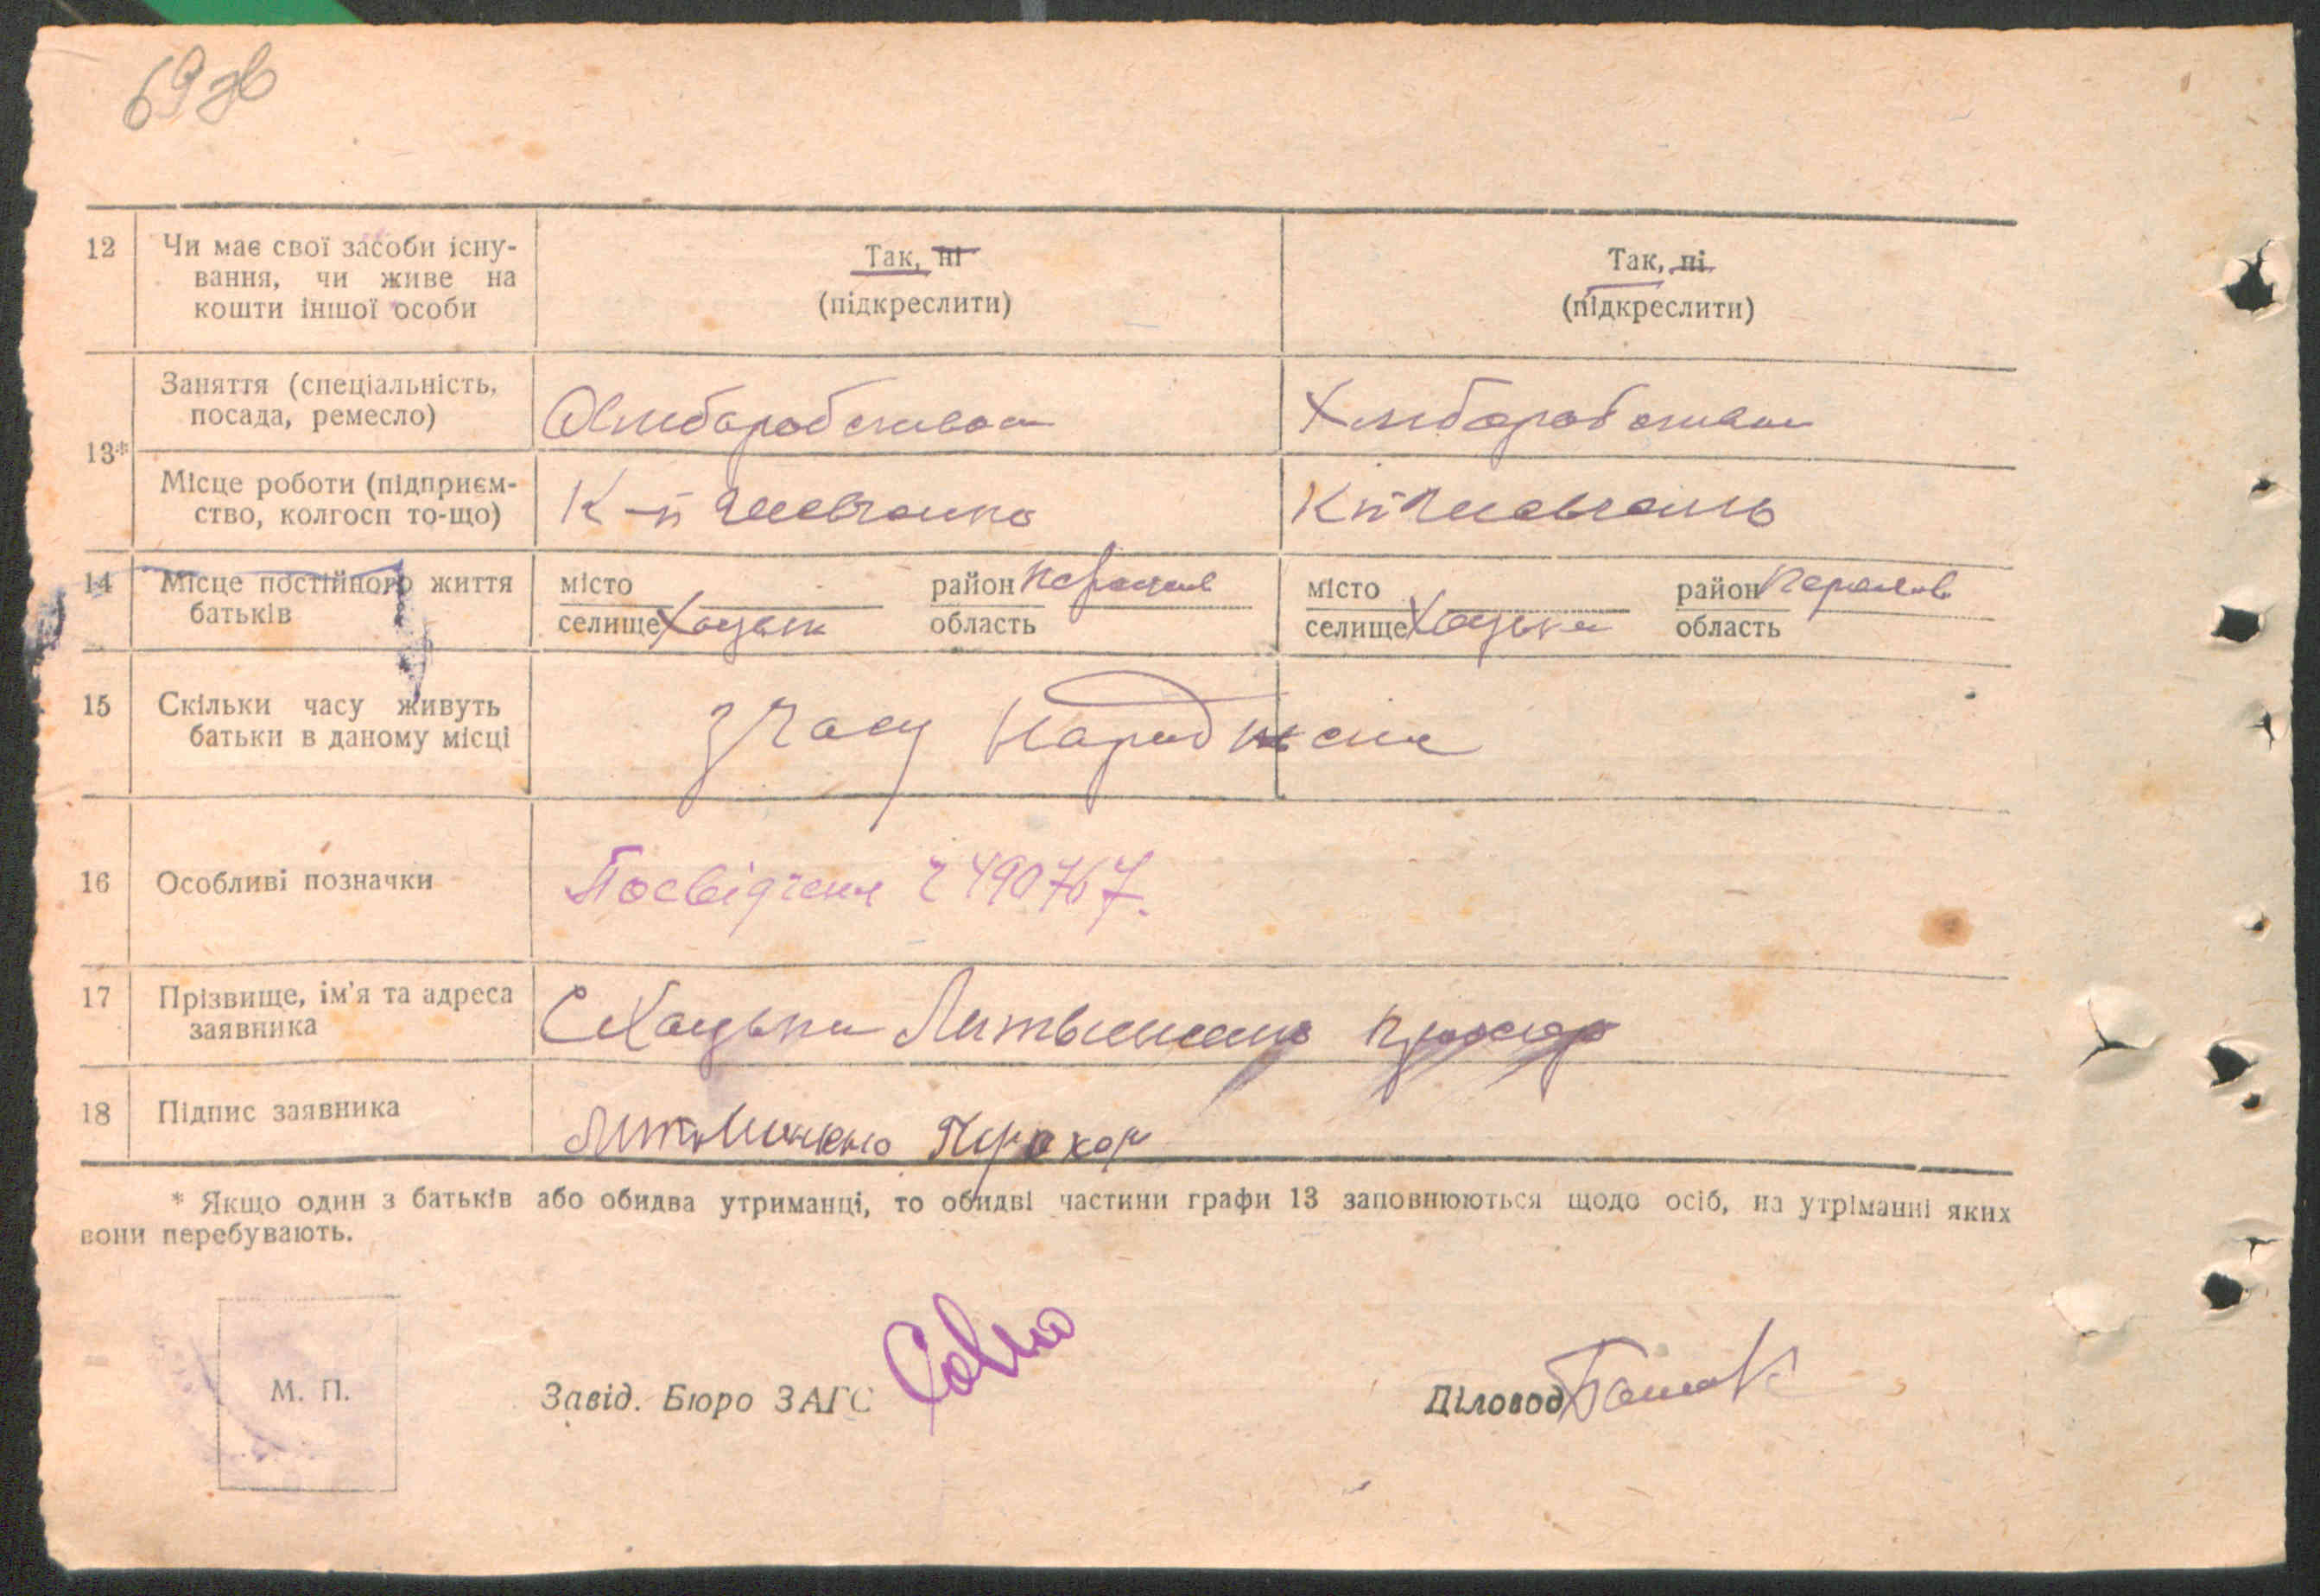 69 зв
12 Чи має свої засоби існу-
вання, чи живе на
кошти іншої особи
Так, ні
(підкреслити)
Так, ні
(підкреслити)
13*
Заняття (спеціальність,
посада, ремесло)
Хлиборобством
Хлиборобством
Місце роботи (підприєм-
ство, колгосп то-що)
К-п Шевченко
К-п Шевченко
14 Місце постійного життя
батьків
місто
селище Хацьки
район
область
місто
селище Хацьки
район
область
15 Скільки часу живуть
батьки в даному місці
З часу Народження
16 Особливі позначки
Посвідчення 2490767.
17 Прізвище, ім'я та адреса
заявника
С Хацьки Литвиненко Прохор
18 Підпис заявника
Литвиненко Прохор
* Якщо один з батьків або обидва утриманці, то обидві частини графи 13 заповнюються щодо осіб, на утріманні яких
вони перебувають.
М. П.
Завід. Бюро ЗАГС
Діловод